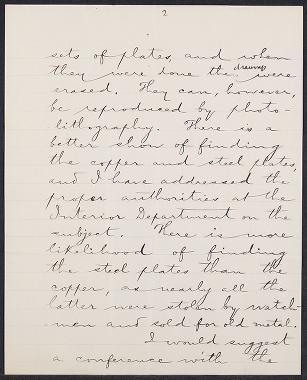 2
sets of plates, and when
they were done the drawings were
erased. They can, however,
be reproduced by photo-
lithography. There is a
better show of finding
the copper and steel plates,
and I have addressed the
proper authorities at the
Interior Department on the
subject. There is more
likelihood of finding
the steel plates than the
copper, as nearly all the
latter were stolen by watch-
men and sold for old metal.
I would suggest
a conference with the